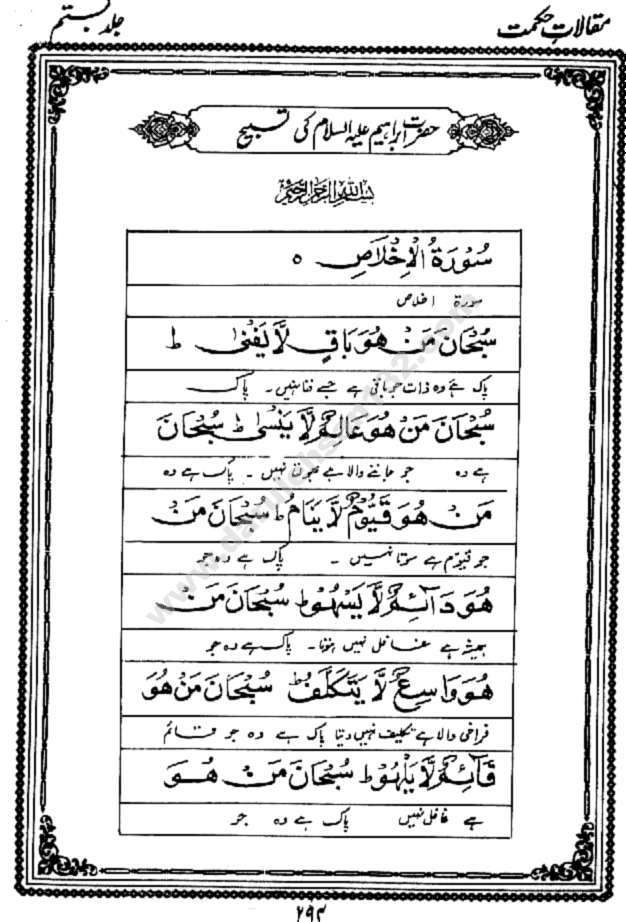 مقالاتِ حکمت
جلد ہشتم
حضرت ابراہیم علیہ السلام کی تسبیح
بسم الله الرحمن الرحيم
سُوْرَةُ الْاِخْلَاصِ ٥
سورۃ اخلاص
سُبْحَانَ مَنْ هُوَ بَاقٍ لَّا يَفْنٰى ط
پاک ہے وہ ذات جو باقی ہے جسے فنا نہیں ۔ پاک
سُبْحَانَ مَنْ هُوَ عَالِمٌ لَّا يَنْسٰى ط سُبْحَانَ
ہے وہ جو جاننے والا ہے بھولتا نہیں ۔ پاک ہے وہ
مَنْ هُوَ قَيُّوْمٌ لَّا يَنَامُ ط سُبْحَانَ مَنْ
جو قیوم ہے سوتا نہیں ۔ پاک ہے وہ جو
هُوَ دَآئِمٌ لَّا يَسْهُوْ ط سُبْحَانَ مَنْ
ہمیشہ ہے غافل نہیں ہوتا ۔ پاک ہے وہ جو
هُوَ وَاسِعٌ لَّا يَتَكَلَّفُ ط سُبْحَانَ مَنْ هُوَ
فراخی والا ہے تکلیف نہیں دیتا پاک ہے وہ جو قائم
قَآئِمٌ لَّا يَلْهُوْ ط سُبْحَانَ مَنْ هُوَ
ہے غافل نہیں پاک ہے وہ جو
۲۹۴